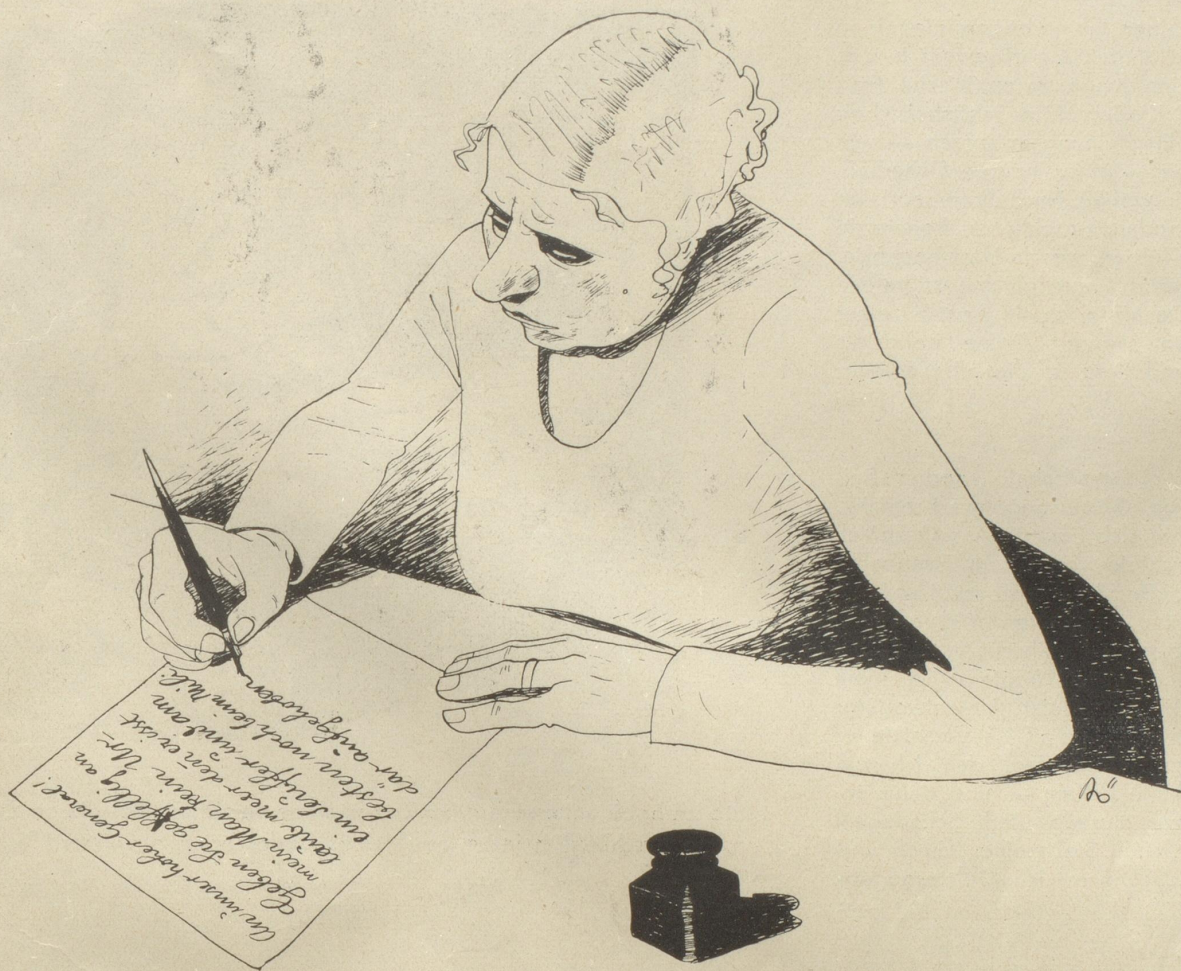 An unser hoher General!
Geben Sie geffellig an
mein Man kein Ur=
laub meer den er isst
ein Sÿffer und am
besten noch beim Mili
där aufgehoben
Bö